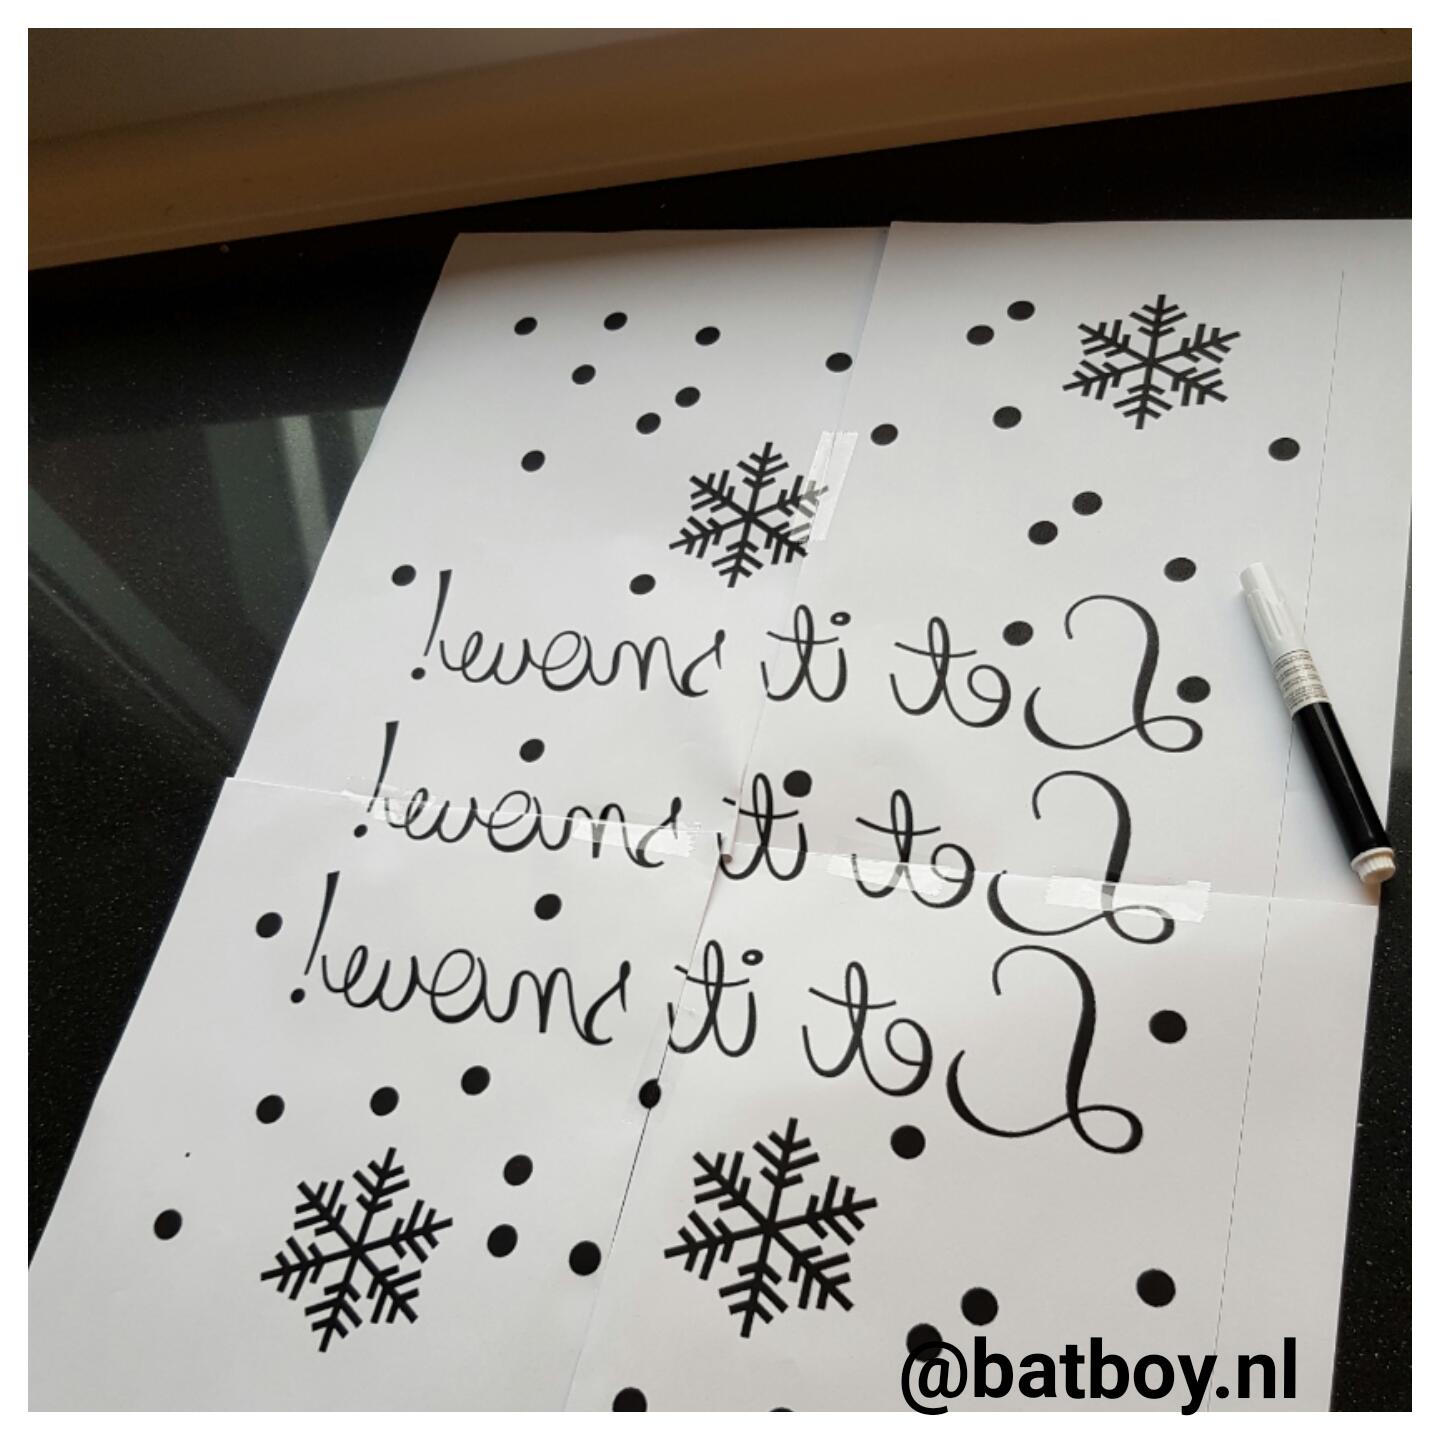 Let it snow!
Let it snow!
Let it snow!
@batboy.nl